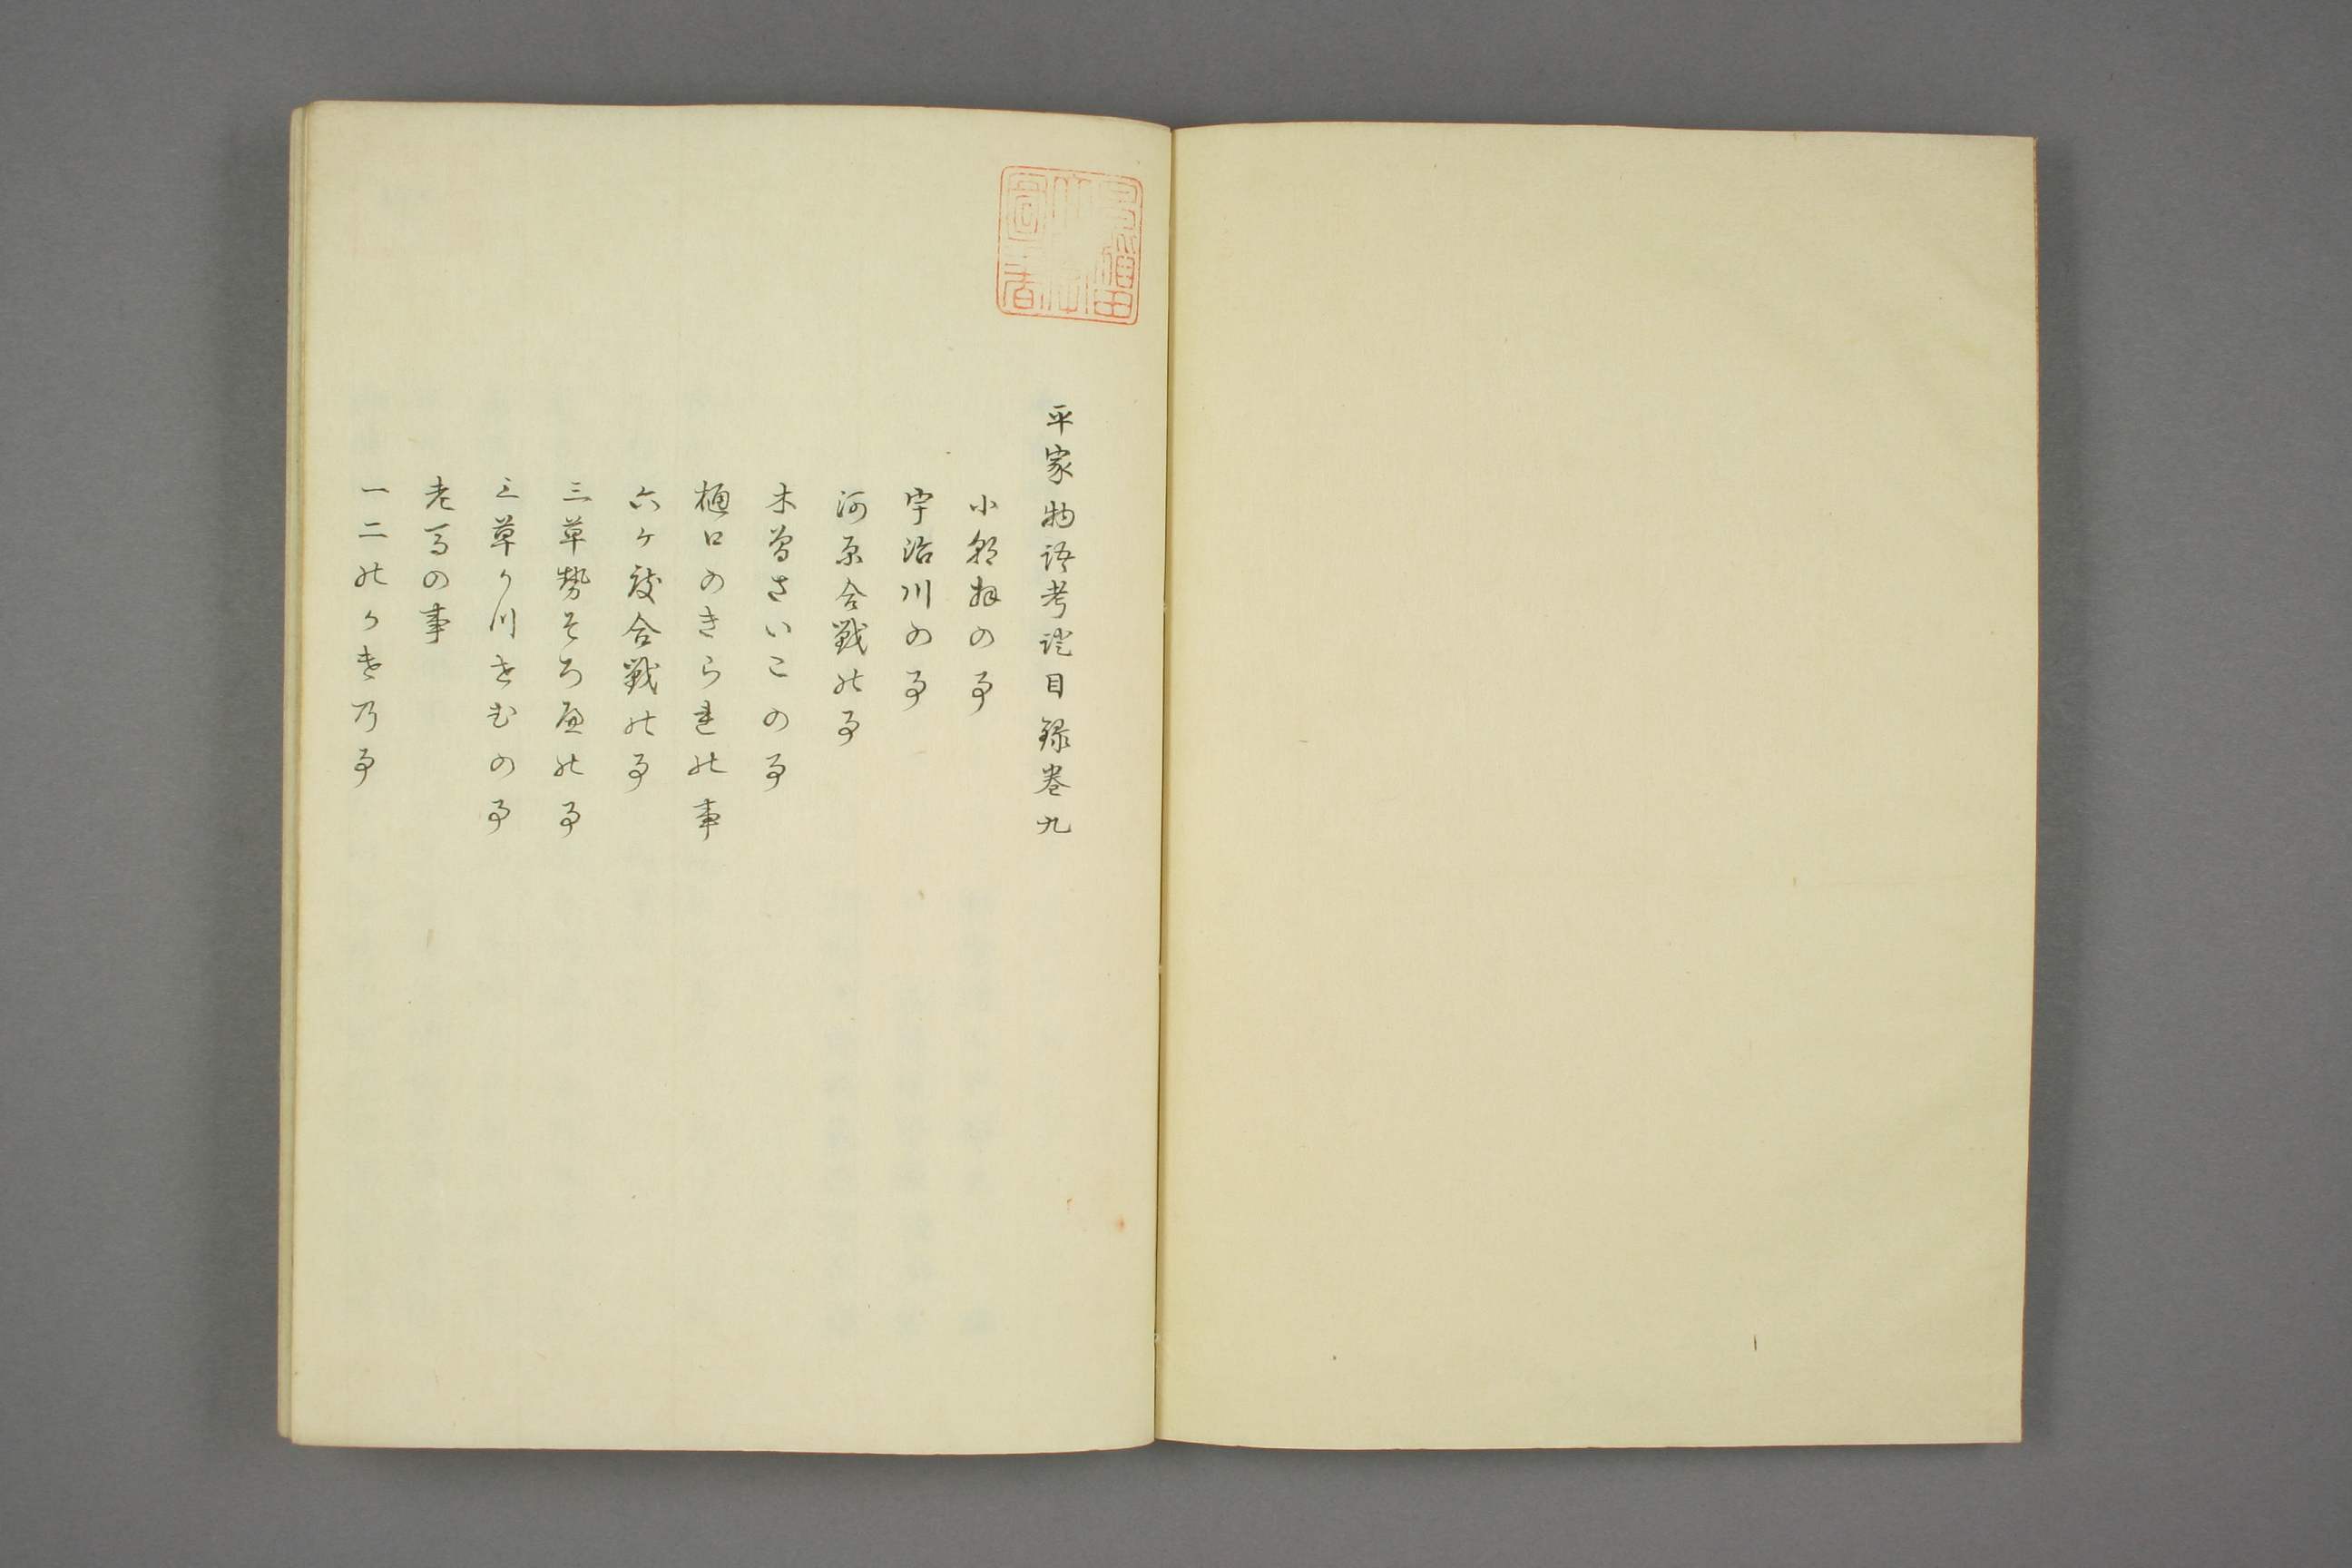 平家物語考證目録巻九
小朝拜の事
宇治川の事
河原合戦の事
木曽さいこの事
樋口のきられの事
六ケ度合戦の事
三草勢そろへの事
三草か川せむの事
老馬の事
一二のかけ乃事